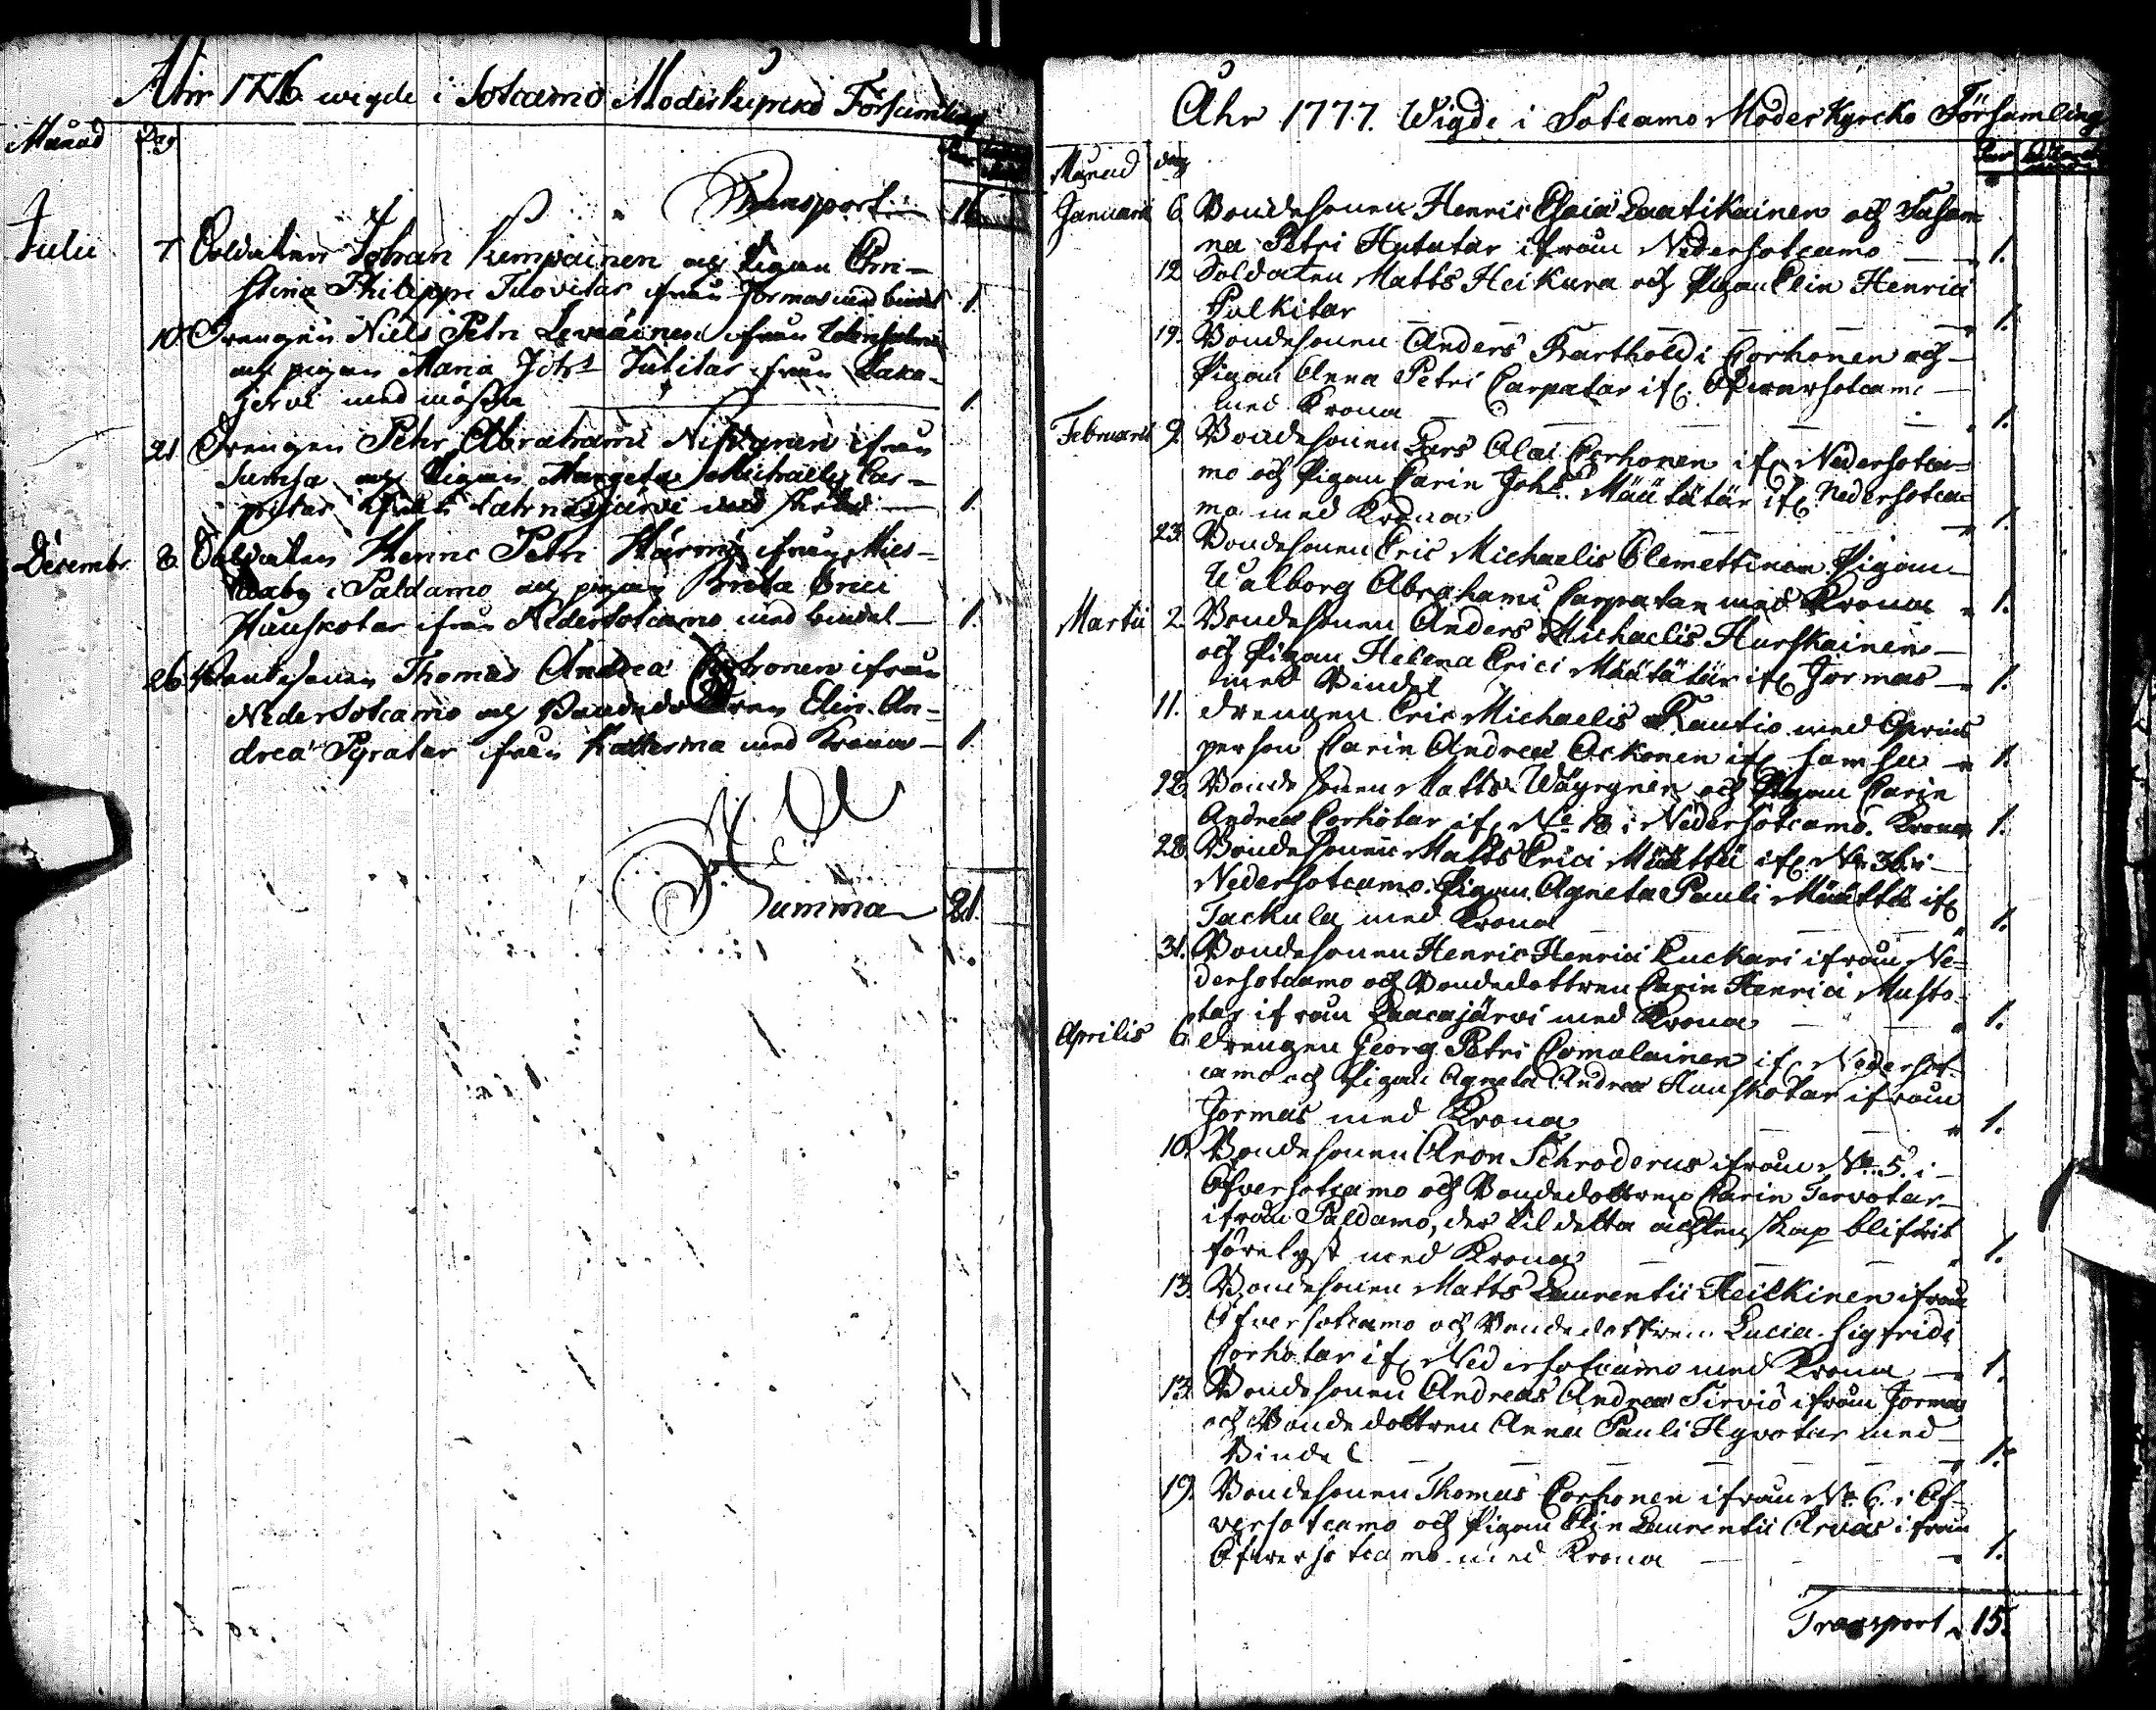 Åhr 1776 wigde i Sotcamo Moderkyrko Församling
Månad Dag
Transport 16.
Julii 7. Soldaten Johan Kumpainen och Pigan Chri-
stina Philippi Tuovitar ifrån Jormas med bindel 1.
10. Drengen Niels Petri Leveinen ifrån
och pigan Maria Joh:s Jutitar ifrån Laka-
jervi med mössa 1.
21. Drengen Pehr Abrahami Niskanen ifrån
Sumsa och Pigan Margeta Michaelis Car-
patar ifrån Lahnasjärvi med 1.
Decembr 8. Soldaten Henric Petri Härmä ifrån Mies-
i Paldamo och pigan Breta Erici
Hauskotar ifrån Nedersotcamo med bindel 1.
26. Bondesonen Thomas Andreæ Corhonen ifrån
Nedersotcamo och Bondedottren Elin An-
dreæ Pyratar ifrån Katterma med Krona 1.
Summa 21.
Åhr 1777. Wigde i Sotcamo Moder Kyrcko Församling
Månad dag Par
Januarii 6. Bondesonen Henric Esaiæ Laatikainen och Susan-
na Petri Hututar ifrån Nedersotcamo 1.
12. Soldaten Matts Heikura och Pigan Elin Henrici
Polkitar 1.
19. Bondesonen Anders Bartholdi Corhonen och
Pigan Anna Petri Carpatar if: Öfwersotcamo
med Krona 1.
Februarii 9. Bondesonen Lars Olai Corhonen if: Nedersotca-
mo och Pigan Carin Joh:s Määtätär if: Nedersotca-
mo med Krona 1.
23. Bondesonen Eric Michaelis Clemettinen Pigan
Walborg Abrahami Carpatar med Krona 1.
Martii 2. Bondesonen Anders Michaelis Hurskainen
och Pigan Helena Erici Määtätär if: Jormas
med Bindel 1.
11. drengen Eric Michaelis Rautio med Qwins
person Carin Andreæ Ackonen if: Sumsa 1.
12. Bonde sonen Matts Wäyrynen och Pigan Carin
Andreæ Corhotar if: N:o 18 i Nedersotcamo. Krona 1.
28. Bondesonen Matts Erici Määttä if: N:o 36. i
Nedersotcamo. Pigan Agneta Pauli Määttä if:
Tackula med Krona 1.
31. Bondesonen Henric Henrici Luckari ifrån Ne-
dersotcamo och Bondedottren Carin Henrici Musto-
tar ifrån Laacajärvi med Krona 1.
Aprilis 6. drengen Georg Petri Comulainen if: Nedersot-
camo och Pigan Agneta Andreæ Hauskotar ifrån
Jormas med Krona 1.
10. Bondesonen Aron Schroderus ifrån N:o 5. i
Öfversotcamo och Bondedottren Carin Tervotar
ifrån Paldamo, der til detta ächtenskap blifwit
förelyst med Krona 1.
13. Bondesonen Matts Laurentii Heikkinen ifrån
Öfversotcamo och Bondedottren Lucia Sigfridi
Corhotar if: Nedersotcamo med Krona 1.
13. Bondesonen Andreas Andreæ Tirviö ifrån Jormas
och Bondedottren Anna Pauli Hyvotar med
Bindel 1.
19. Bondesonen Thomas Corhonen ifrån N:o 6. i Öf-
versotcamo och Pigan Elin Laurentii Arvas ifrån
Öfwersotcamo med Krona 1.
Transport 15.